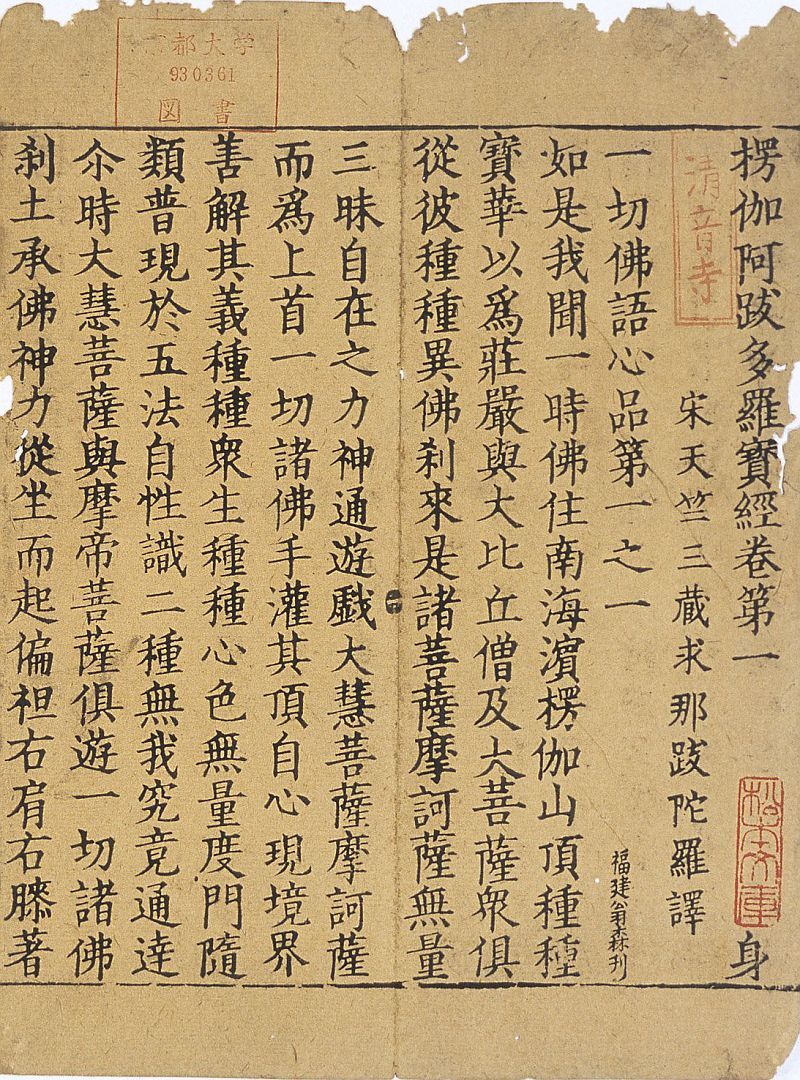 楞伽阿跋多羅寶經卷第一 身
宋天竺三藏求那跋陀羅譯
一切佛語心品第一之一 福建翁森刊
如是我聞一時佛住南海濵楞伽山頂種種
寶華以爲莊嚴與大比丘僧及大菩薩衆俱
從彼種種異佛刹來是諸菩薩摩訶薩無量
三昧自在之力神通遊戲大慧菩薩摩訶薩
而爲上首一切諸佛手灌其頂自心現境界
善解其義種種衆生種種心色無量度門隨
類普現於五法自性識二種無我究竟通達
尒時大慧菩薩與摩帝菩薩俱遊一切諸佛
刹土承佛神力從坐而起偏袒右肩右膝著
都大学
930361
図書
清音寺